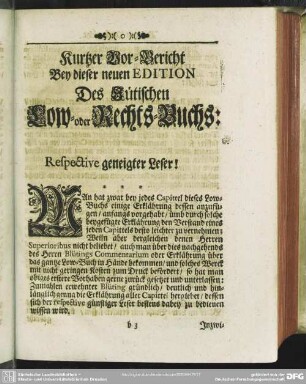 ):( o ):(
Kurtzer Vor-Bericht
Bey dieser neuen EDITION
Des Jütischen
Low- oder Rechts-Buchs:
Respective geneigter Leser!
MAn hat zwar bey jedes Capittel dieses Low-
Buchs einige Erklährung dessen anzufü-
gen / anfangs vorgehabt / umb durch solche
beygefügte Erklährung den Verstand eines
jeden Capittels desto leichter zu vernehmen:
Wenn aber dergleichen denen Herren
Superioribus nicht beliebet / auch man über dies nachgehends
des Herrn Blütings Commentarium oder Erklährung über
das gantze Low-Buch in Hände bekommen / und solches Werck
mit nicht geringen Kosten zum Druck befodert / so hat man
obiges erstere Vorhaben gerne zurück gesetzet und unterlassen:
Zumahlen erwehnter Blüting gründlich / deutlich und hin-
länglich genug die Erklährung aller Capittel hergiebet / dessen
sich der respective günstiger Leser bestens dabey zu bedienen
wissen wird.
b 3
Inzwi-